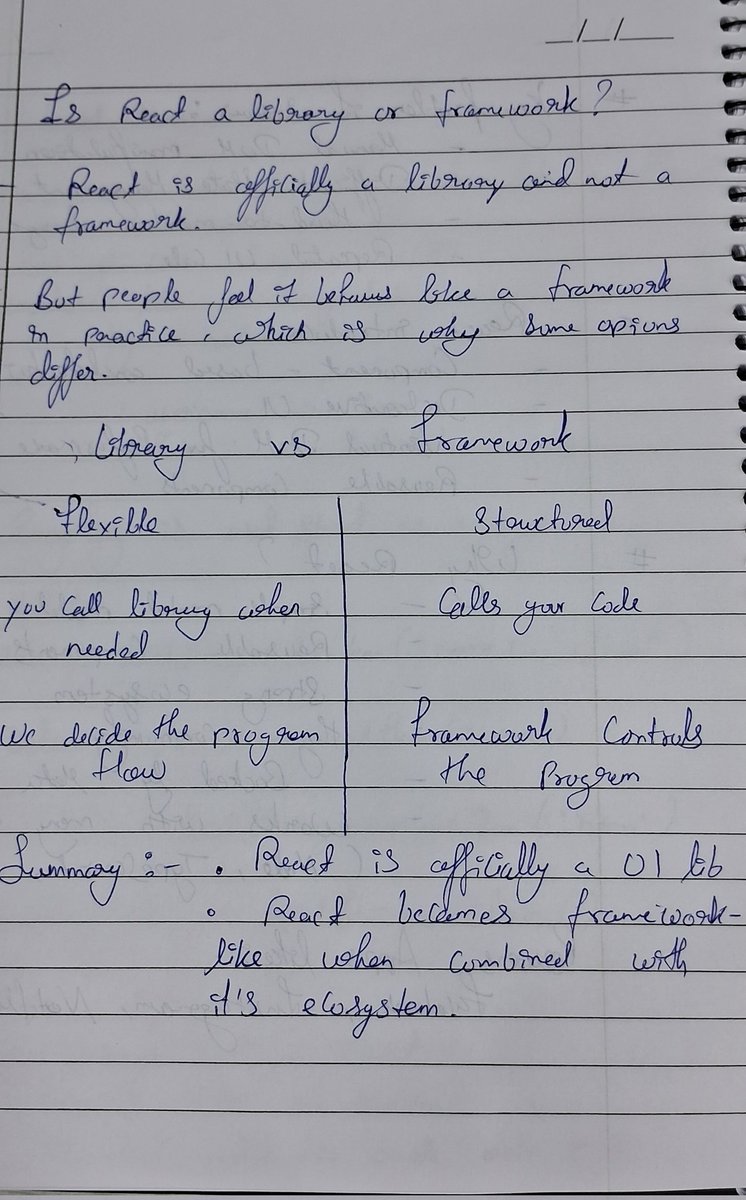 __/__/____
Is React a library or framework?
React is officially a library and not a
framework.
But people feel it behaves like a framework
in practice, which is why some opions
differ.
Library vs framework
flexible
Structured
you call library when
needed
Calls your Code
We decide the program
flow
framework Controls
the Program
Summary :- • React is officially a UI lib
• React becomes framework-
like when combined with
it's ecosystem.